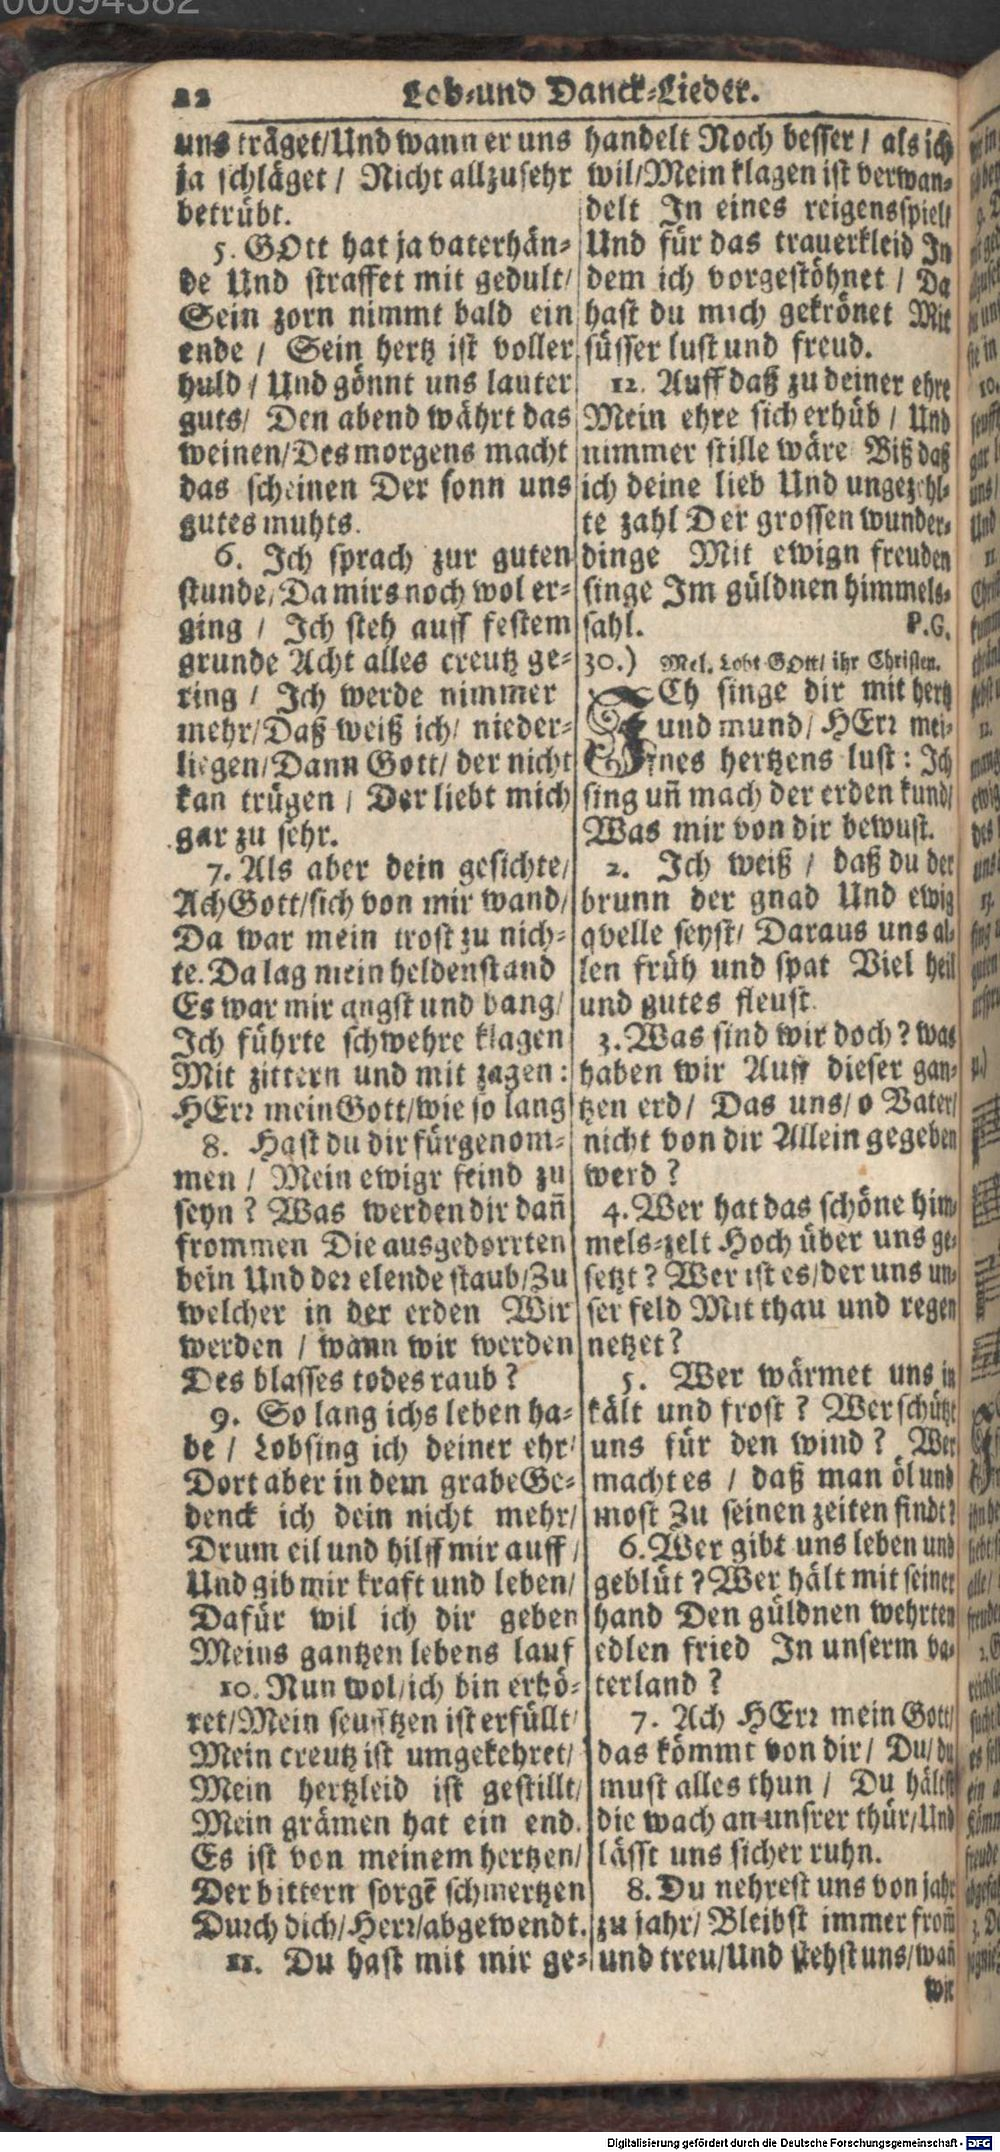 00094382
22 Lob-und Danck-Lieder.
uns träget/Und wann er uns
ja schläget / Nicht allzusehr
betrübt.
5. GOtt hat ja vaterhän-
de Und straffet mit gedult/
Sein zorn nimmt bald ein
ende / Sein hertz ist voller
huld / Und gönnt uns lauter
guts/ Den abend währt das
weinen/Des morgens macht
das scheinen Der sonn uns
gutes muhts.
6. Ich sprach zur guten
stunde/Da mirs noch wol er-
ging / Ich steh auff festem
grunde Acht alles creutz ge-
ring / Ich werde nimmer
mehr/Daß weiß ich/ nieder-
liegen/Dann Gott/ der nicht
kan trügen / Der liebt mich
gar zu sehr.
7. Als aber dein gesichte/
Ach Gott/sich von mir wand/
Da war mein trost zu nich-
te. Da lag mein heldenstand
Es war mir angst und bang/
Ich führte schwehre klagen
Mit zittern und mit zagen:
HErr mein Gott/wie so lang
8. Hast du dir fürgenom-
men / Mein ewigr feind zu
seyn ? Was werden dir dañ
frommen Die ausgedorrten
bein Und der elende staub/Zu
welcher in der erden Wir
werden / wann wir werden
Des blasses todes raub ?
9. So lang ichs leben ha-
be / Lobsing ich deiner ehr/
Dort aber in dem grabe Ge-
denck ich dein nicht mehr/
Drum eil und hilff mir auff /
Und gib mir kraft und leben/
Dafür wil ich dir geben
Meins gantzen lebens lauf
10. Nun wol/ich bin erhö-
ret/Mein seufftzen ist erfüllt/
Mein creutz ist umgekehret/
Mein hertzleid ist gestillt/
Mein grämen hat ein end.
Es ist von meinem hertzen/
Der bittern sorgē schmertzen
Durch dich/Herr/abgewendt.
11. Du hast mit mir ge-
handelt Noch besser / als ich
wil/Mein klagen ist verwan-
delt In eines reigensspiel/
Und für das trauerkleid In
dem ich vorgestöhnet / Da
hast du mich gekrönet Mit
süsser lust und freud.
12. Auff daß zu deiner ehre
Mein ehre sich erhüb / Und
nimmer stille wäre Biß daß
ich deine lieb Und ungezehl-
te zahl Der grossen wunder-
dinge Mit ewign freuden
singe Im güldnen himmels-
sahl. P.G.
30.) Mel. Lobt GOtt/ ihr Christen.
ICh singe dir mit hertz
und mund/ HErr mei-
nes hertzens lust: Ich
sing uñ mach der erden kund/
Was mir von dir bewust.
2. Ich weiß / daß du der
brunn der gnad Und ewig
qvelle seyst/ Daraus uns al-
len früh und spat Viel heil
und gutes fleust.
3. Was sind wir doch ? was
haben wir Auff dieser gan-
tzen erd/ Das uns/ o Vater/
nicht von dir Allein gegeben
werd ?
4. Wer hat das schöne him-
mels-zelt Hoch über uns ge-
setzt ? Wer ist es/der uns un-
ser feld Mit thau und regen
netzet ?
5. Wer wärmet uns in
kält und frost ? Wer schützt
uns für den wind ? Wer
macht es / daß man öl und
most Zu seinen zeiten findt?
6. Wer gibt uns leben und
geblüt ? Wer hält mit seiner
hand Den güldnen wehrten
edlen fried In unserm va-
terland ?
7. Ach HErr mein Gott/
das kömmt von dir/ Du/du
must alles thun / Du hältst
die wach an unsrer thür/Und
lässt uns sicher ruhn.
8. Du nehrest uns von jahr
zu jahr/ Bleibst immer from̄
und treu/Und stehst uns/wañ
wir
Digitalisierung gefördert durch die Deutsche Forschungsgemeinschaft - DFG